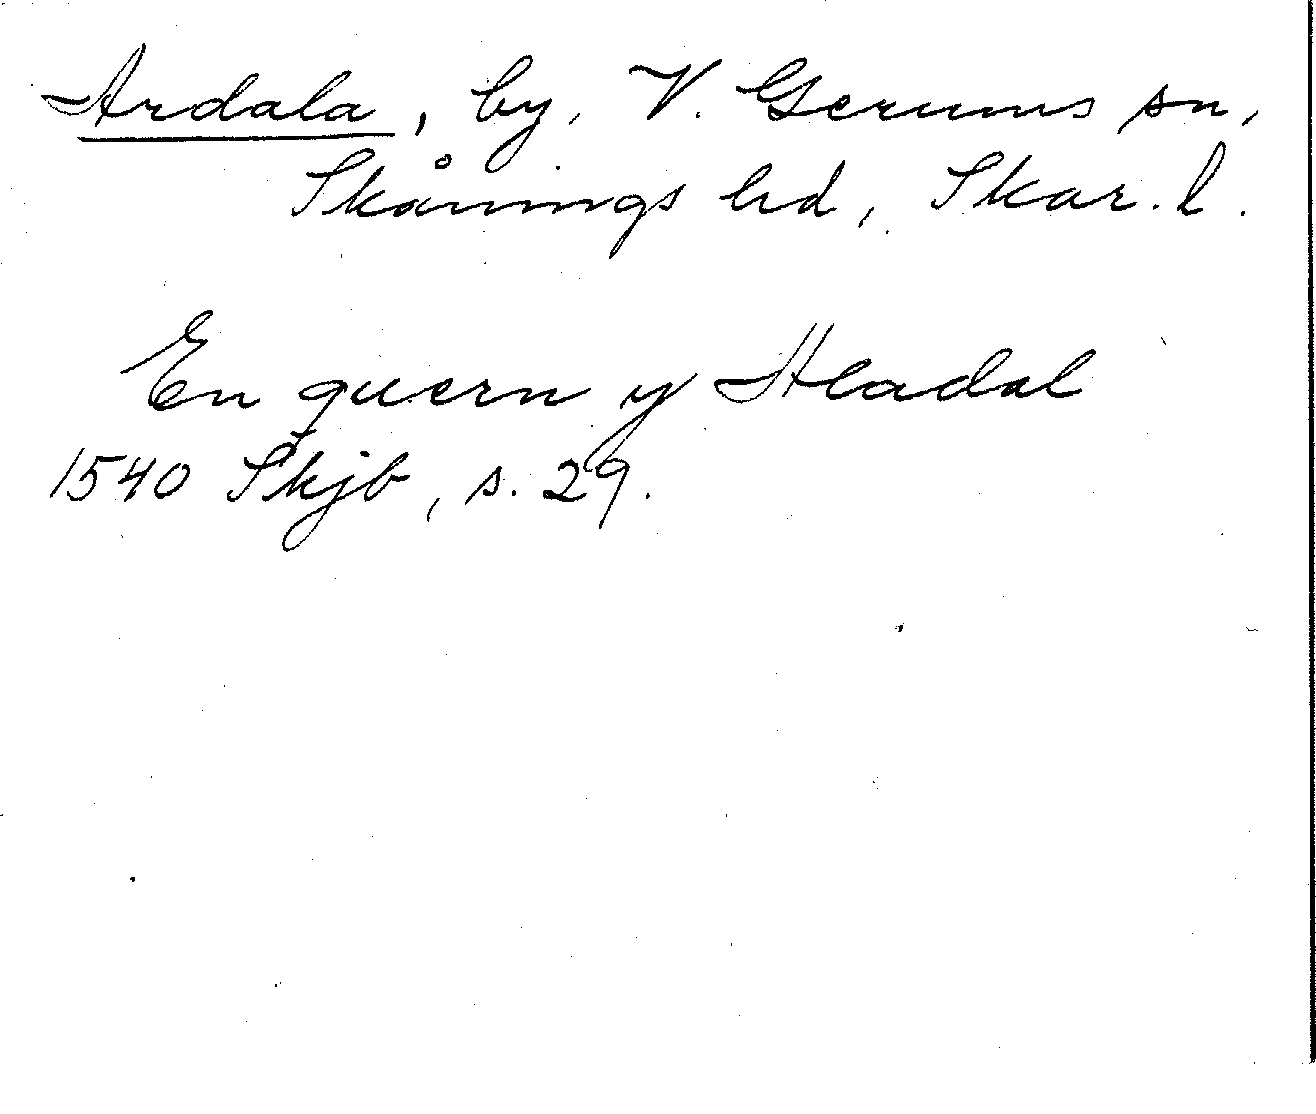 Ardala, by, V. Gerums sn,
Skånings hd, Skar. l.
En quern y Aladal
1540 Skjb, s. 29.